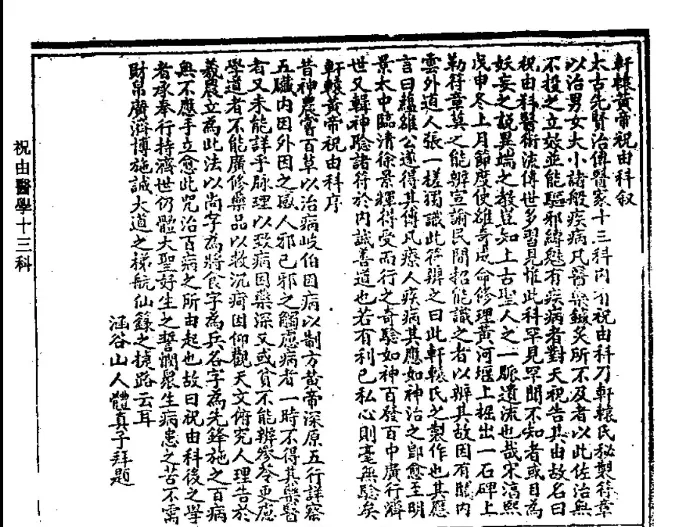 軒轅黃帝祝由科叙
太古先賢治傳醫家十三科內有祝由科乃軒轅氏秘製符章
以治男女大小諸般疾病凡醫藥鍼炙所不及者以此佐治無
不投之立效並能驅邪縛魅有疾病者對天祝告其由故名曰
祝由科醫術流傳世多習見惟此科罕見罕聞不知者或目為
妖妄之說異端之教豈知上古聖人之一脈遺流也哉宋淳熙
戊申冬上月節度使雄奇成命修理黃河堰上掘出一石碑上
勒符章莫之能辨宣諭民間招能識之者以辨其故因有閣內
雲外道人張一槎獨識此符辨之曰此軒轅氏之製作也其應
言曰蘊雄公遂得其傳凡療人疾病其應如神治之即愈至明
景太中臨清徐景輝得受而行之奇驗如神百發百中廣行濟
世又輯神驗諸符於內誠善道也若有利己私心則毫無驗矣
軒轅黃帝祝由科序
昔神農嘗百草以治病岐伯因病以制方黃帝深原五行詳察
五臟內因外因之感人邪己邪之觸慮病者一時不得其藥醫
者又未能詳乎脈理以致病因藥深又或貧不能辦參苓更慮
學道者不能廣修藥品以救沉疴因仰觀天文俯究人理告於
羲農立為此法以尚字為將食字為兵谷字為先鋒施之百病
無不應手立愈此咒治百病之所由起也故曰祝由科後之學
者承奉行持濟世仍體大聖好生之誓憫眾生病患之苦不需
財帛廣濟博施誠大道之梯航仙籙之捷路云耳
涵谷山人體真子拜題
祝由醫學十三科